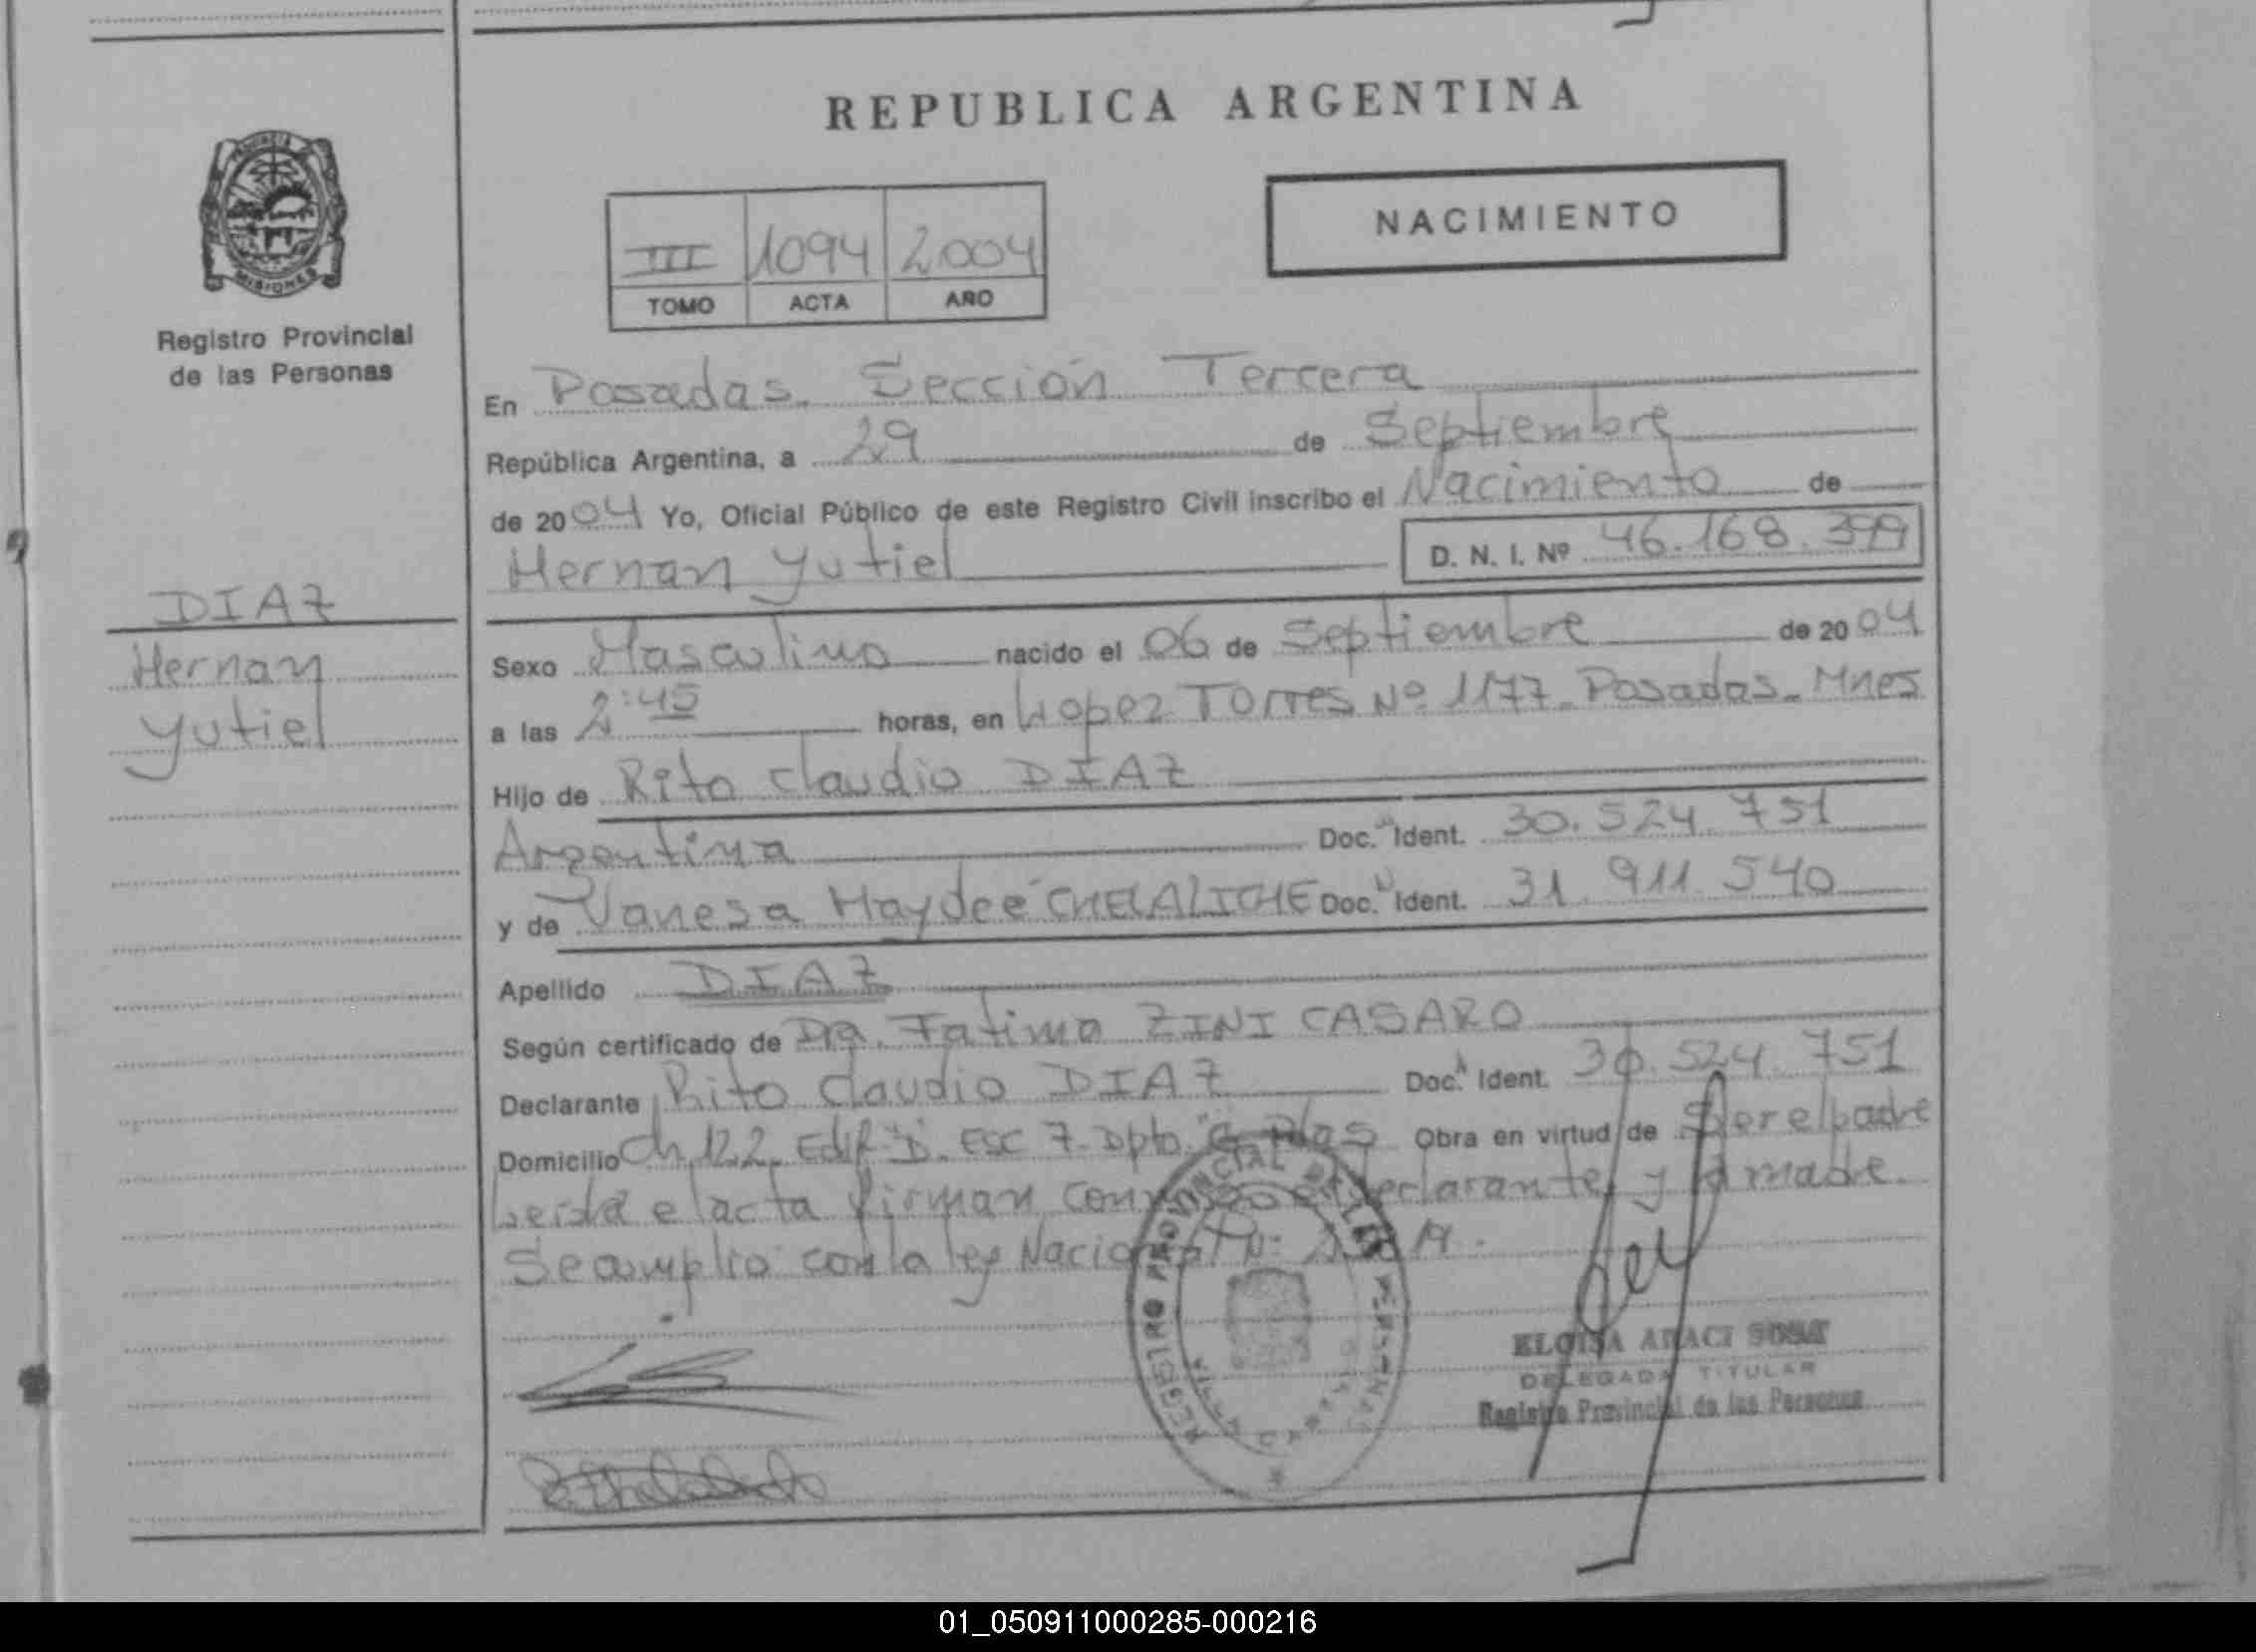 REPUBLICA ARGENTINA
PROVINCIA
MISIONES
Registro Provincial
de las Personas
III 1094 2004
TOMO ACTA AÑO
NACIMIENTO
En Posadas. Sección Tercera
República Argentina, a 29 de Septiembre
de 2004 Yo, Oficial Público de este Registro Civil inscribo el Nacimiento de
Hernan Yutiel D. N. I. Nº 46.168.399
DIAZ
Hernan
Yutiel
Sexo Masculino nacido el 06 de Septiembre de 2004
a las 2:45 horas, en Lopez Torres Nº 1177. Posadas. Mnes
Hijo de Rito Claudio DIAZ
Argentina Doc. Ident. 30.524.751
y de Vanesa Haydeé Doc. Ident. 31.911.540
Apellido DIAZ
Según certificado de Dra. Fatima ZINI CASARO
Declarante Rito Claudio DIAZ Doc. Ident. 30.524.751
Domicilio Ch 122. Edif "D". ESC 7. Dpto. Obra en virtud de Ser el padre
Leida el acta firman conmigo el declarante y la madre.
Se cumplio con la ley Nacional Nº
REGISTRO PROVINCIAL DE LAS PERSONAS
ELOISA ARACI SOSA
DELEGADA TITULAR
Registro Provincial de las Personas
01_050911000285-000216